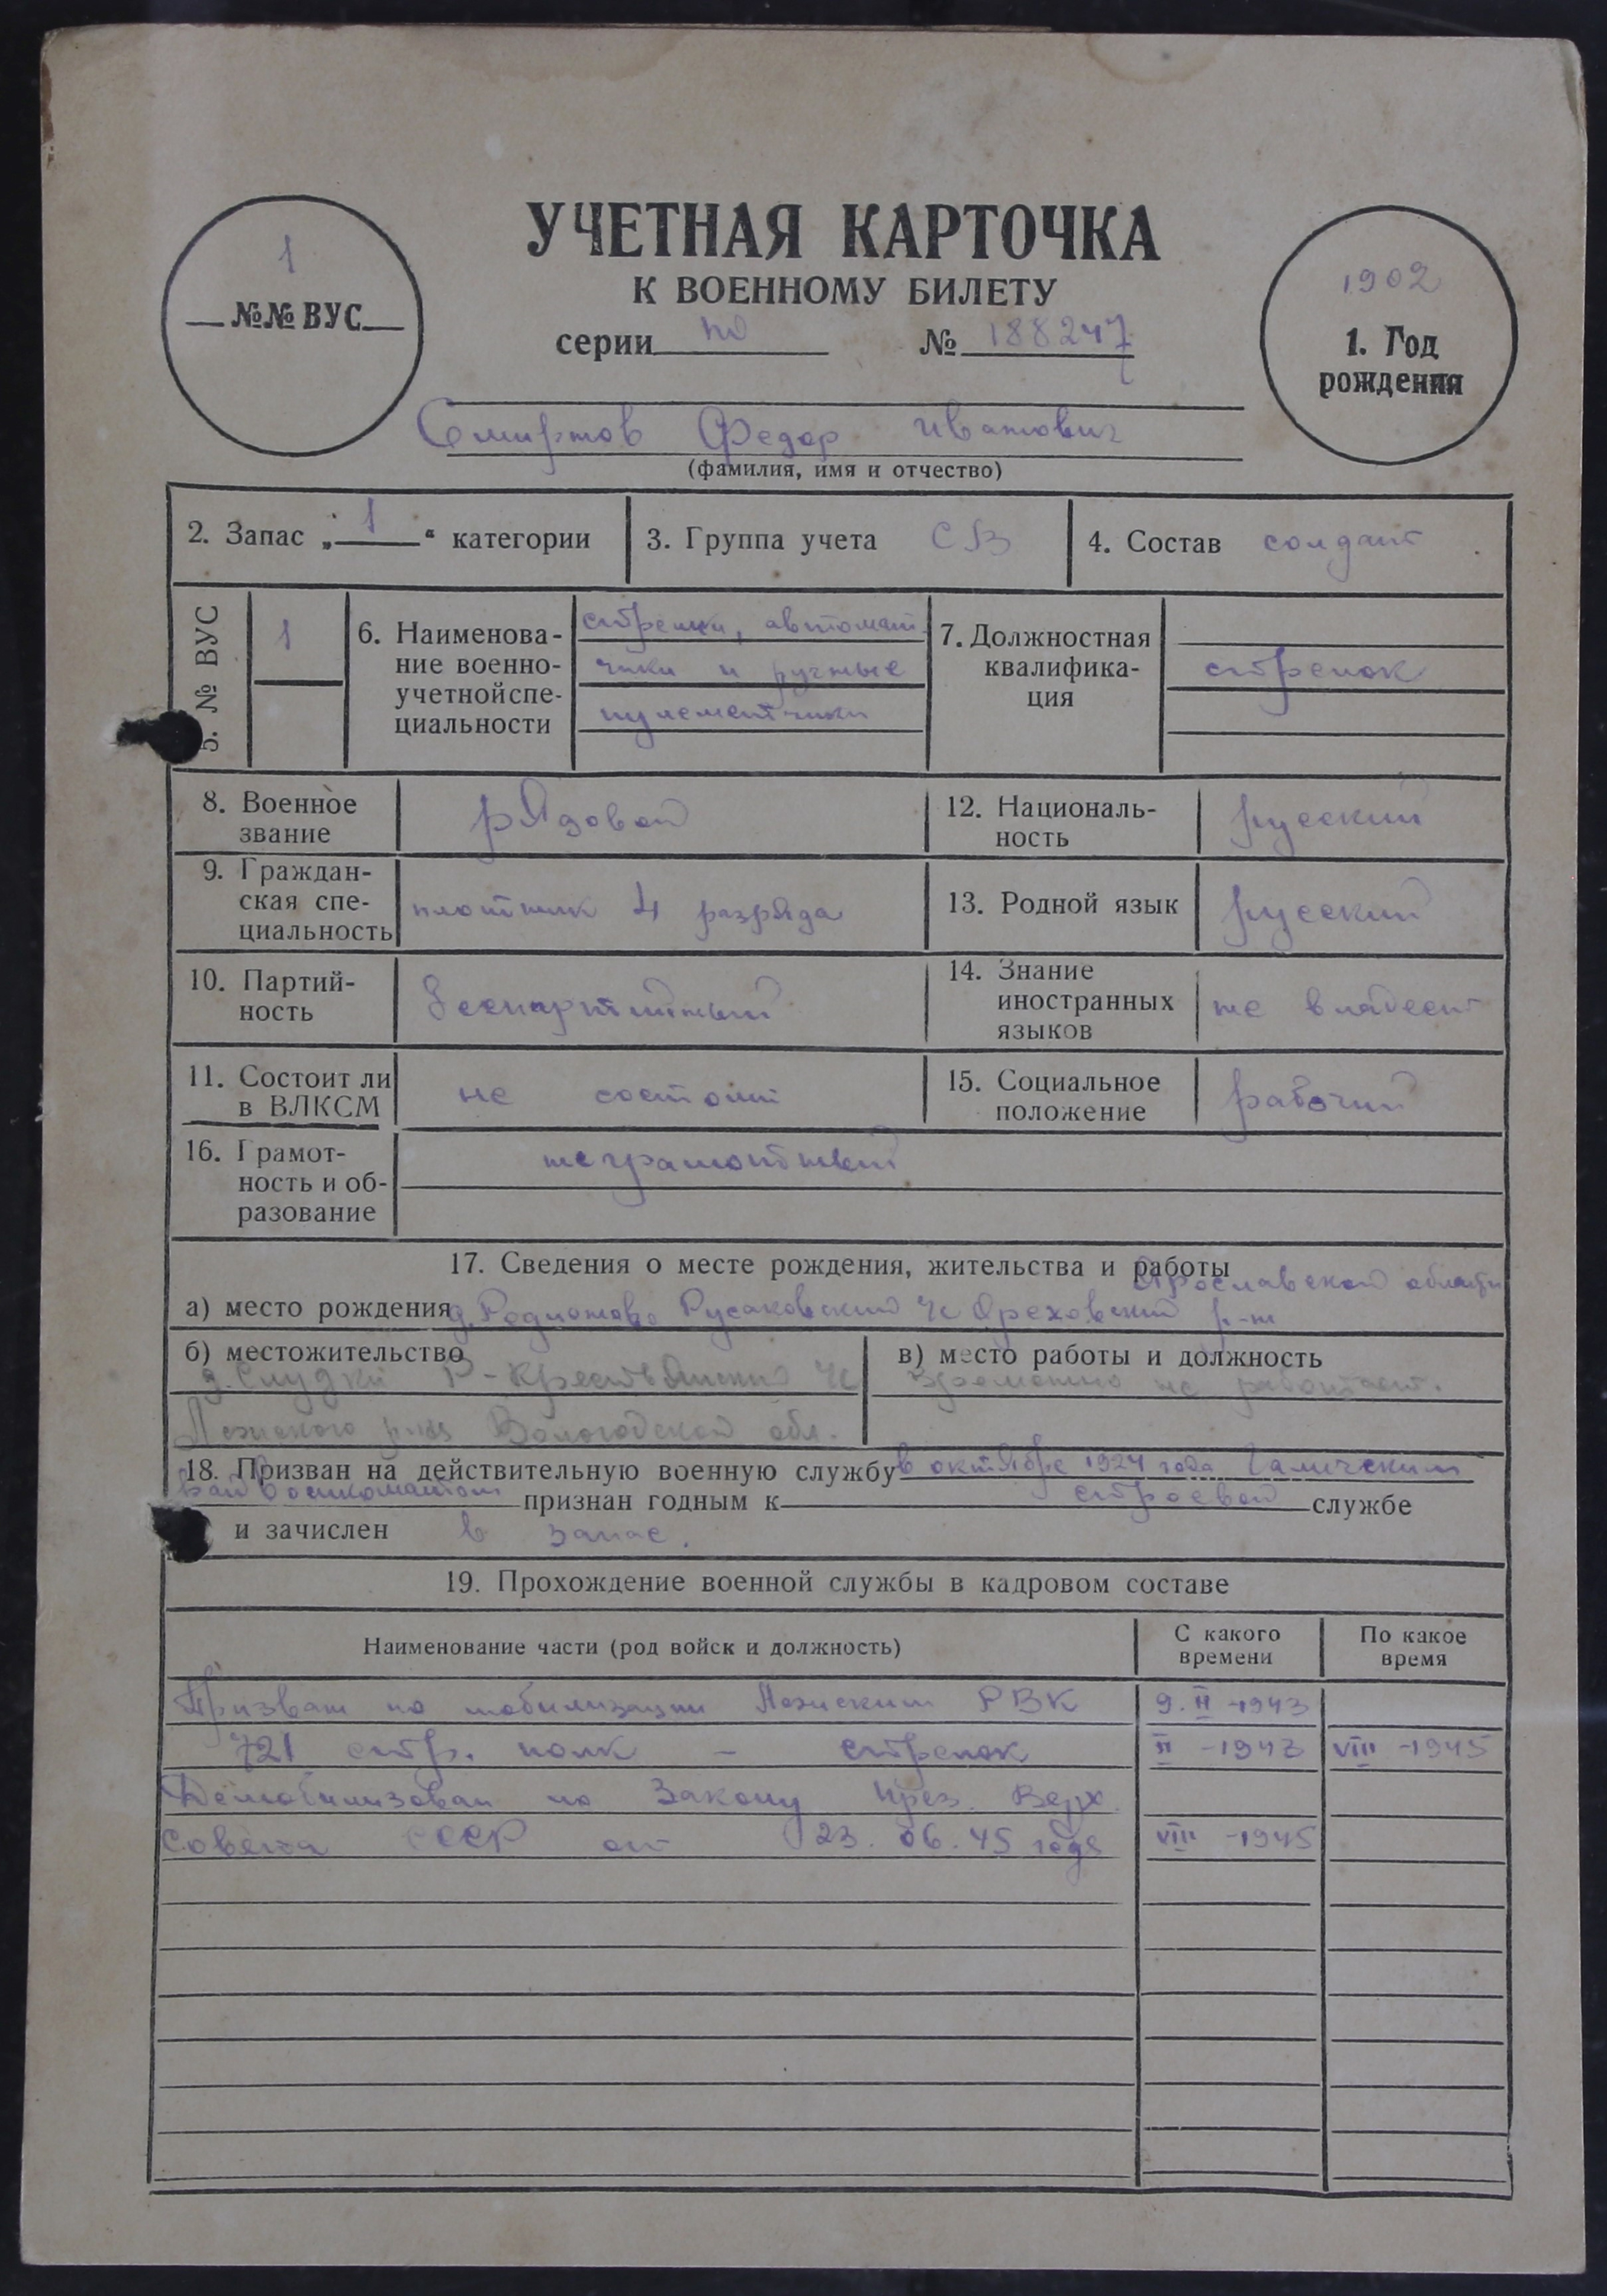 УЧЕТНАЯ КАРТОЧКА
К ВОЕННОМУ БИЛЕТУ
серии № 188247
1
№№ ВУС
1902
1. Год
рождения
Смирнов Федор Иванович
(фамилия, имя и отчество)
2. Запас „ 1 “ категории
3. Группа учета СВ
4. Состав солдат
5. № ВУС
1
6. Наименова-
ние военно-
учетной спе-
циальности
стрелки, автомат
чики и ручные
пулеметчики
7. Должностная
квалифика-
ция
стрелок
8. Военное
звание
рядовой
12. Националь-
ность
русский
9. Граждан-
ская спе-
циальность
плотник 4 разряда
13. Родной язык
русский
10. Партий-
ность
беспартийный
14. Знание
иностранных
языков
не владеет
11. Состоит ли
в ВЛКСМ
не состоит
15. Социальное
положение
рабочий
16. Грамот-
ность и об-
разование
неграмотный
17. Сведения о месте рождения, жительства и работы
Ярославской области
а) место рождения д. Родионово Русаковский с/с Ореховский р-н
б) местожительство
д. Слудки Крестьянский с/с
Лежского р-на Вологодской обл.
в) место работы и должность
Временно не работает.
18. Призван на действительную военную службу в октябре 1924 года Галичским
Райвоенкоматом признан годным к строевой службе
и зачислен в запас.
19. Прохождение военной службы в кадровом составе
Наименование части (род войск и должность)
С какого
времени
По какое
время
Призван по мобилизации Лежским РВК 9. II -1943
721 стр. полк – стрелок II -1943 VIII -1945
Демобилизован по Закону През. Верх.
Совета СССР от 23.06.45 года VIII -1945